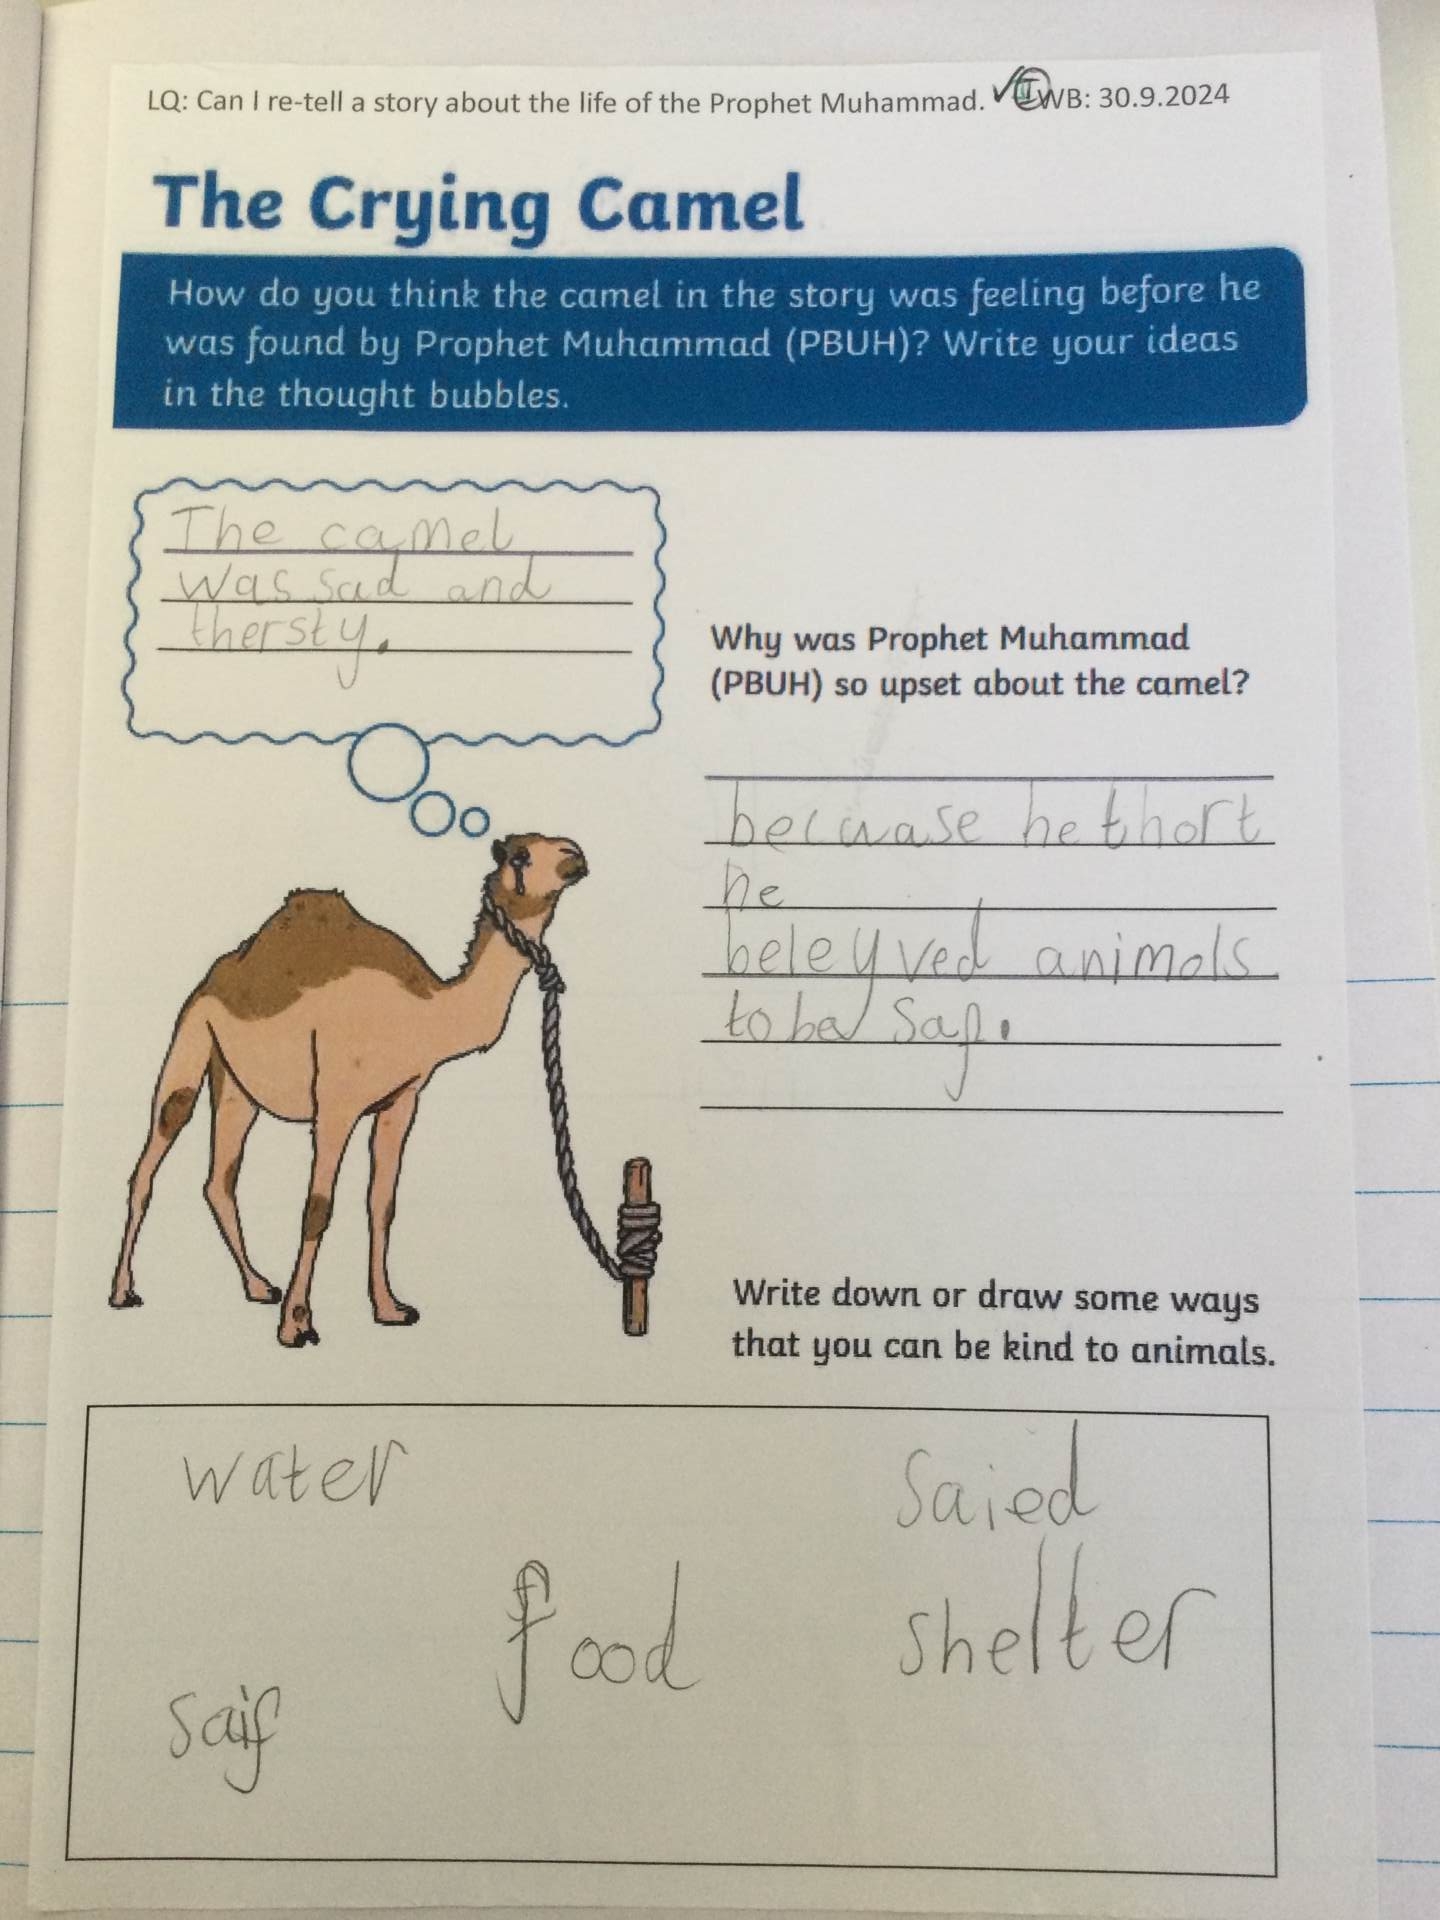 LQ: Can I re-tell a story about the life of the Prophet Muhammad. WB: 30.9.2024
The Crying Camel
How do you think the camel in the story was feeling before he
was found by Prophet Muhammad (PBUH)? Write your ideas
in the thought bubbles.
The camel
was sad and
thersty.
Why was Prophet Muhammad
(PBUH) so upset about the camel?
becuase he thort
he
beleyved animals
to be saf.
Write down or draw some ways
that you can be kind to animals.
water
saied
food
shelter
saif